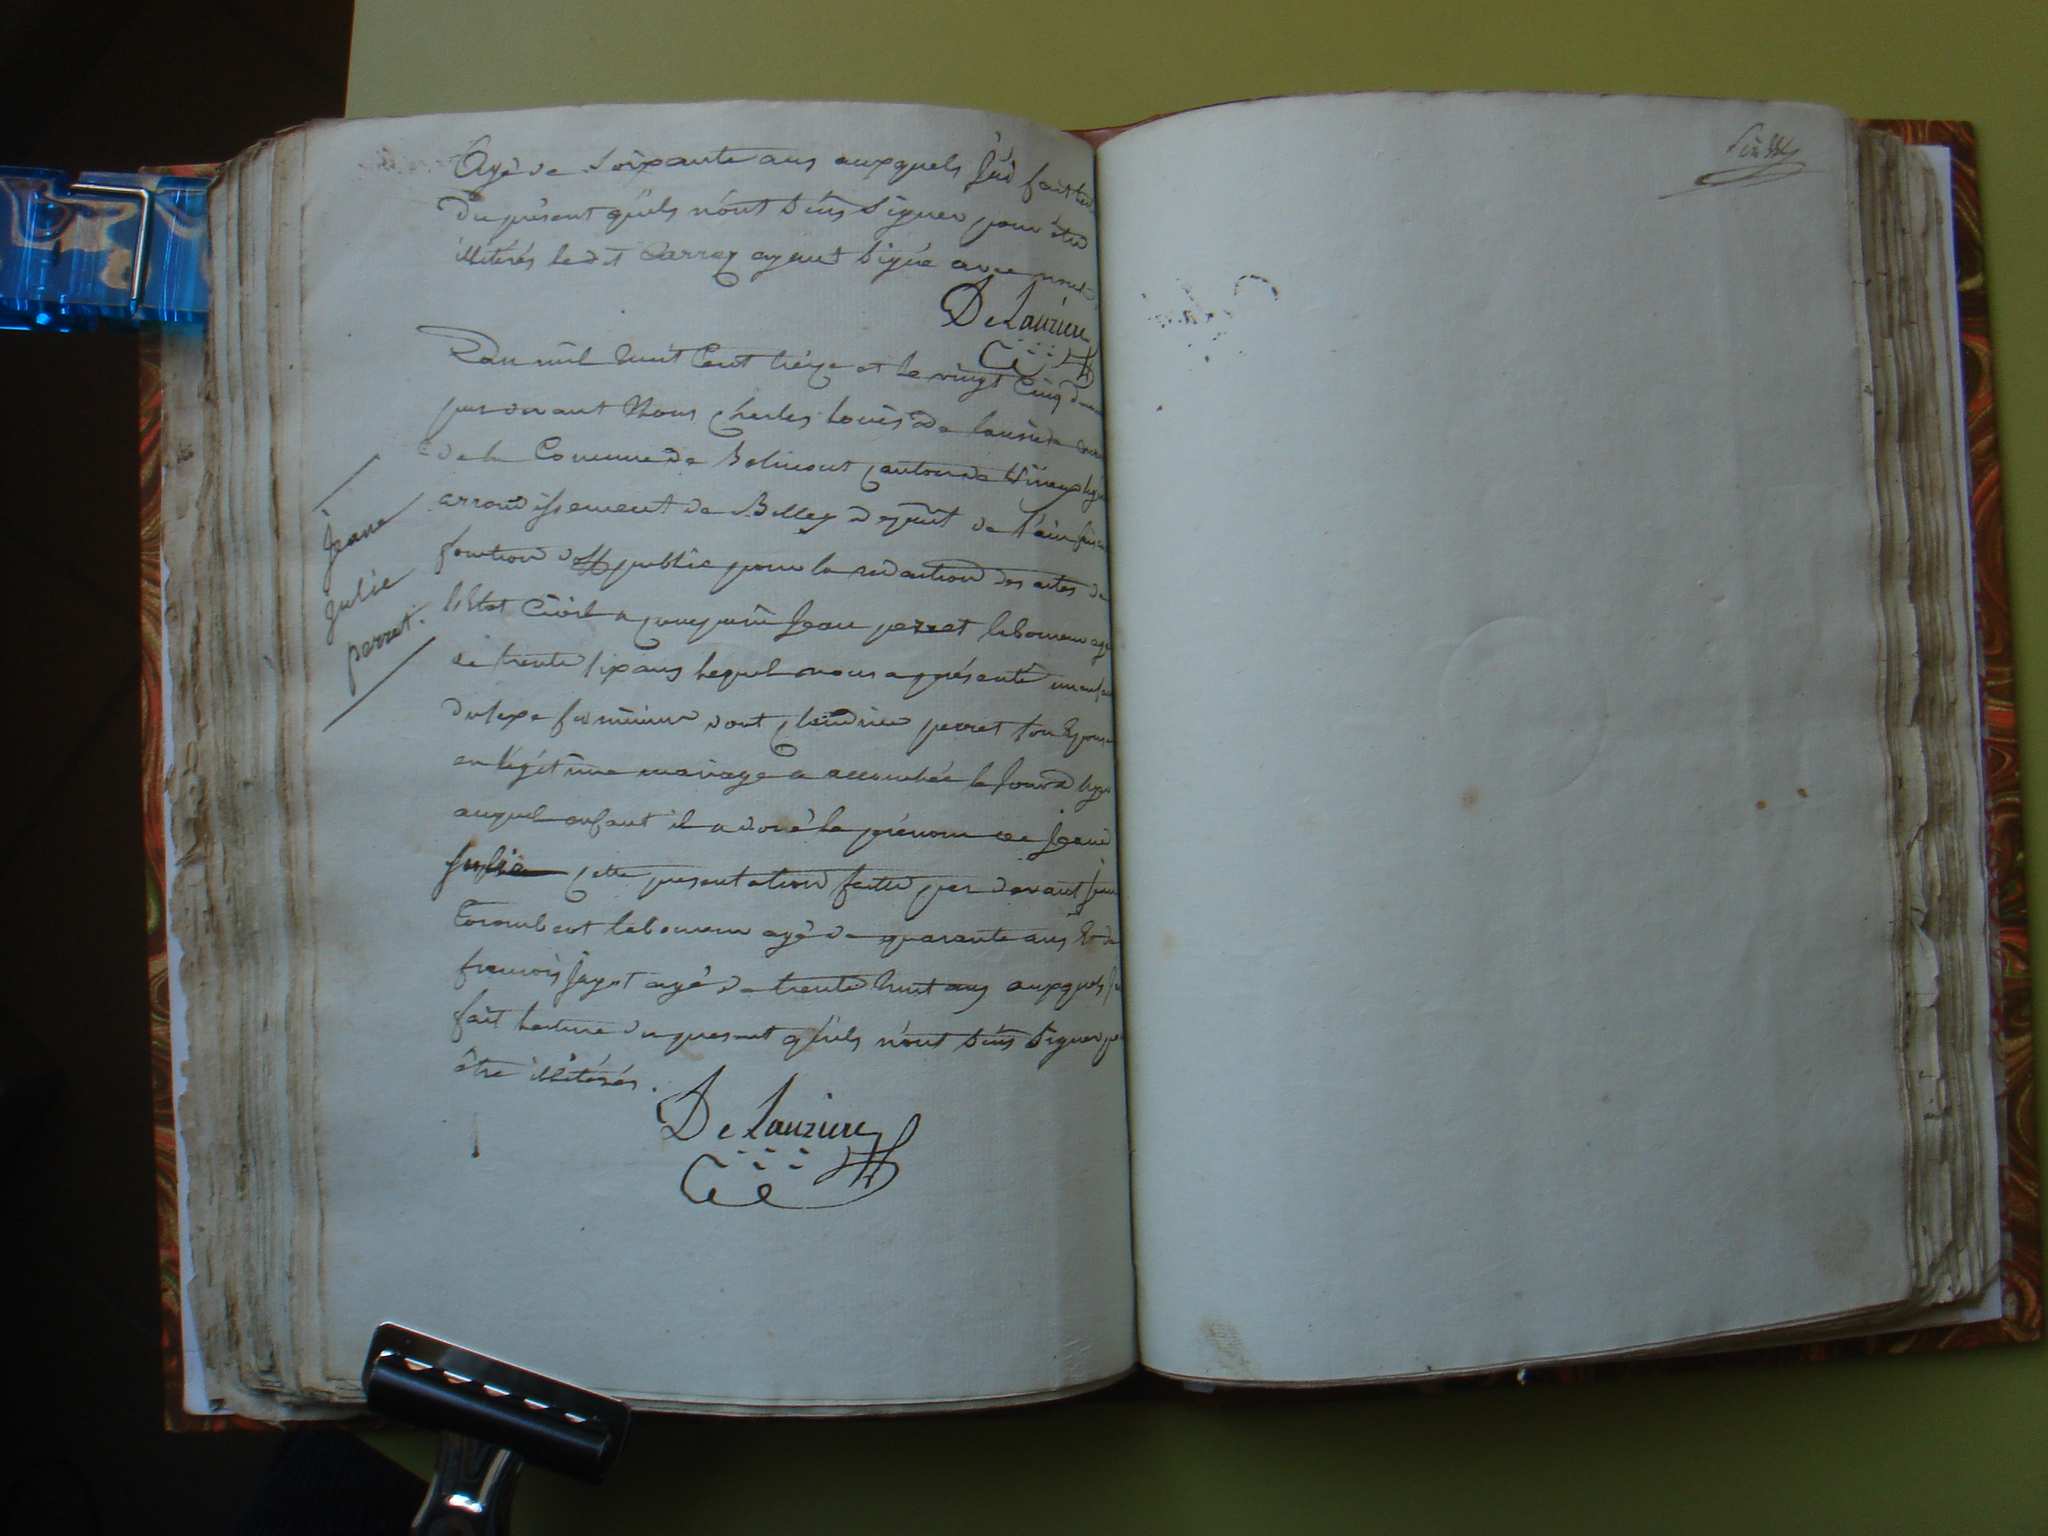 Agé de soixante ans auxquels j'ai fait
du présent qu'ils n'ont sçus signer pour être
illiterés le dit Carrez ayant signé avec nous
DeLauziere
L'an mil huit Cent treize et le vingt Cinq
par devant Nous Charles Louis De Lauziere
de la Commune de Belmont Canton de Virieu
arrondissement de Belley depmt de l'ain
fonction d'off public pour la redaction des actes de
l'Etat Civil a comparu Jean perret laboureur agé
de trente six ans lequel nous a présenté un
du sexe feminin dont Claudine perret son Epouse
en légitime mariage a accouchée le
auquel enfant il a doné le prénom de Jeane
Julie cette presentation faite par devant
laboureur agé de quarante ans Et de
francois Jayet agé de trente huit ans auxquels
fait lecture du present qu'ils n'ont sçus signer
être illiterés.
DeLauziere
Jeane
Julie
perret.